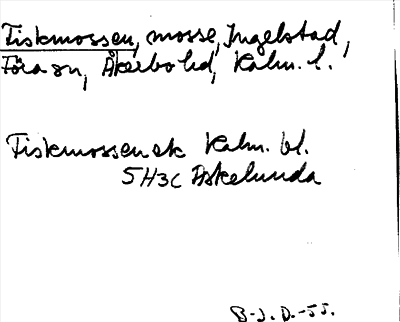 Fiskmossen, mosse, Ingelstad,
Föra sn, Åkerbo hd, Kalm. l.
Fiskmossen ek Kalm. bl.
5H3c Äskelunda
B-J. D.-55.